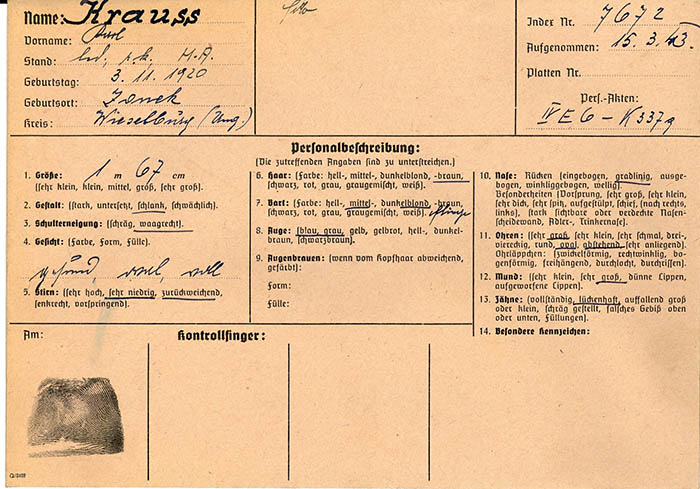 Name: Krauss
Vorname: Karl
Stand: led, r.k. M.A.
Geburtstag: 3. 11. 1920
Geburtsort:
Kreis: Wieselburg (Ung.)
Index Nr. 7672
Aufgenommen: 15. 3. 43.
Platten Nr.
Pers.-Akten:
IV E 6 – K 337g
Personalbeschreibung:
(Die zutreffenden Angaben sind zu unterstreichen.)
1. Größe: 1 m 67 cm
(sehr klein, klein, mittel, groß, sehr groß).
2. Gestalt: (stark, untersetzt, schlank, schwächlich).
3. Schulterneigung: (schräg, waagrecht).
4. Gesicht: (Farbe, Form, Fülle).
gesund, oval, voll
5. Stirn: (sehr hoch, sehr niedrig, zurückweichend,
senkrecht, vorspringend).
6. Haar: (Farbe: hell-, mittel-, dunkelblond, -braun,
schwarz, rot, grau, graugemischt, weiß).
7. Bart: (Farbe: hell-, mittel- dunkelblond, -braun,
schwarz, rot, grau, graugemischt, weiß).
8. Auge: (blau, grau, gelb, gelbrot, hell-, dunkel-
braun, schwarzbraun).
9. Augenbrauen: (wenn vom Kopfhaar abweichend,
gefärbt):
Form:
Fülle:
10. Nase: Rücken (eingebogen, gradlinig, ausge-
bogen, winkliggebogen, wellig).
Besonderheiten (Vorsprung, sehr groß, sehr klein,
sehr dick, sehr spitz, aufgestülpt, schief, (nach rechts,
links), stark sichtbare oder verdeckte Nasen-
scheidewand, Adler-, Trinkernase).
11. Ohren: (sehr groß, sehr klein, sehr schmal, drei-
viereckig, rund, oval, abstehend, sehr anliegend).
Ohrläppchen: (zwickelförmig, rechtwinklig, bo-
genförmig, freihängend, durchlocht, durchrissen).
12. Mund: (sehr klein, sehr groß, dünne Lippen,
aufgeworfene Lippen).
13. Zähne: (vollständig, lückenhaft, auffallend groß
oder klein, schräg gestellt, falsches Gebiß oben
oder unten, Füllungen).
14. Besondere Kennzeichen:
Am:
Kontrollfinger: